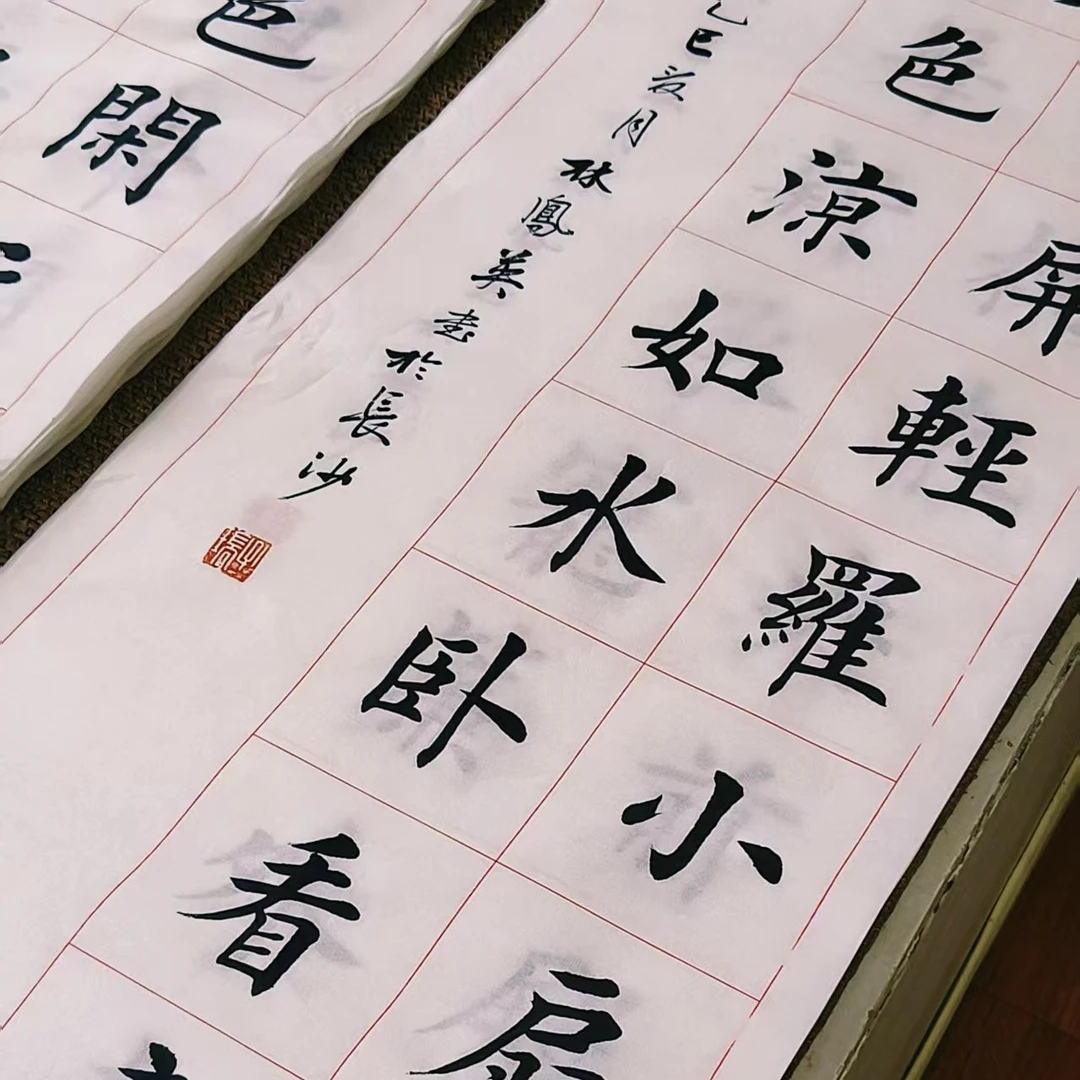 屏輕羅小扇
色涼如水卧看
乙巳夏月林鳳英書於長沙
色閑